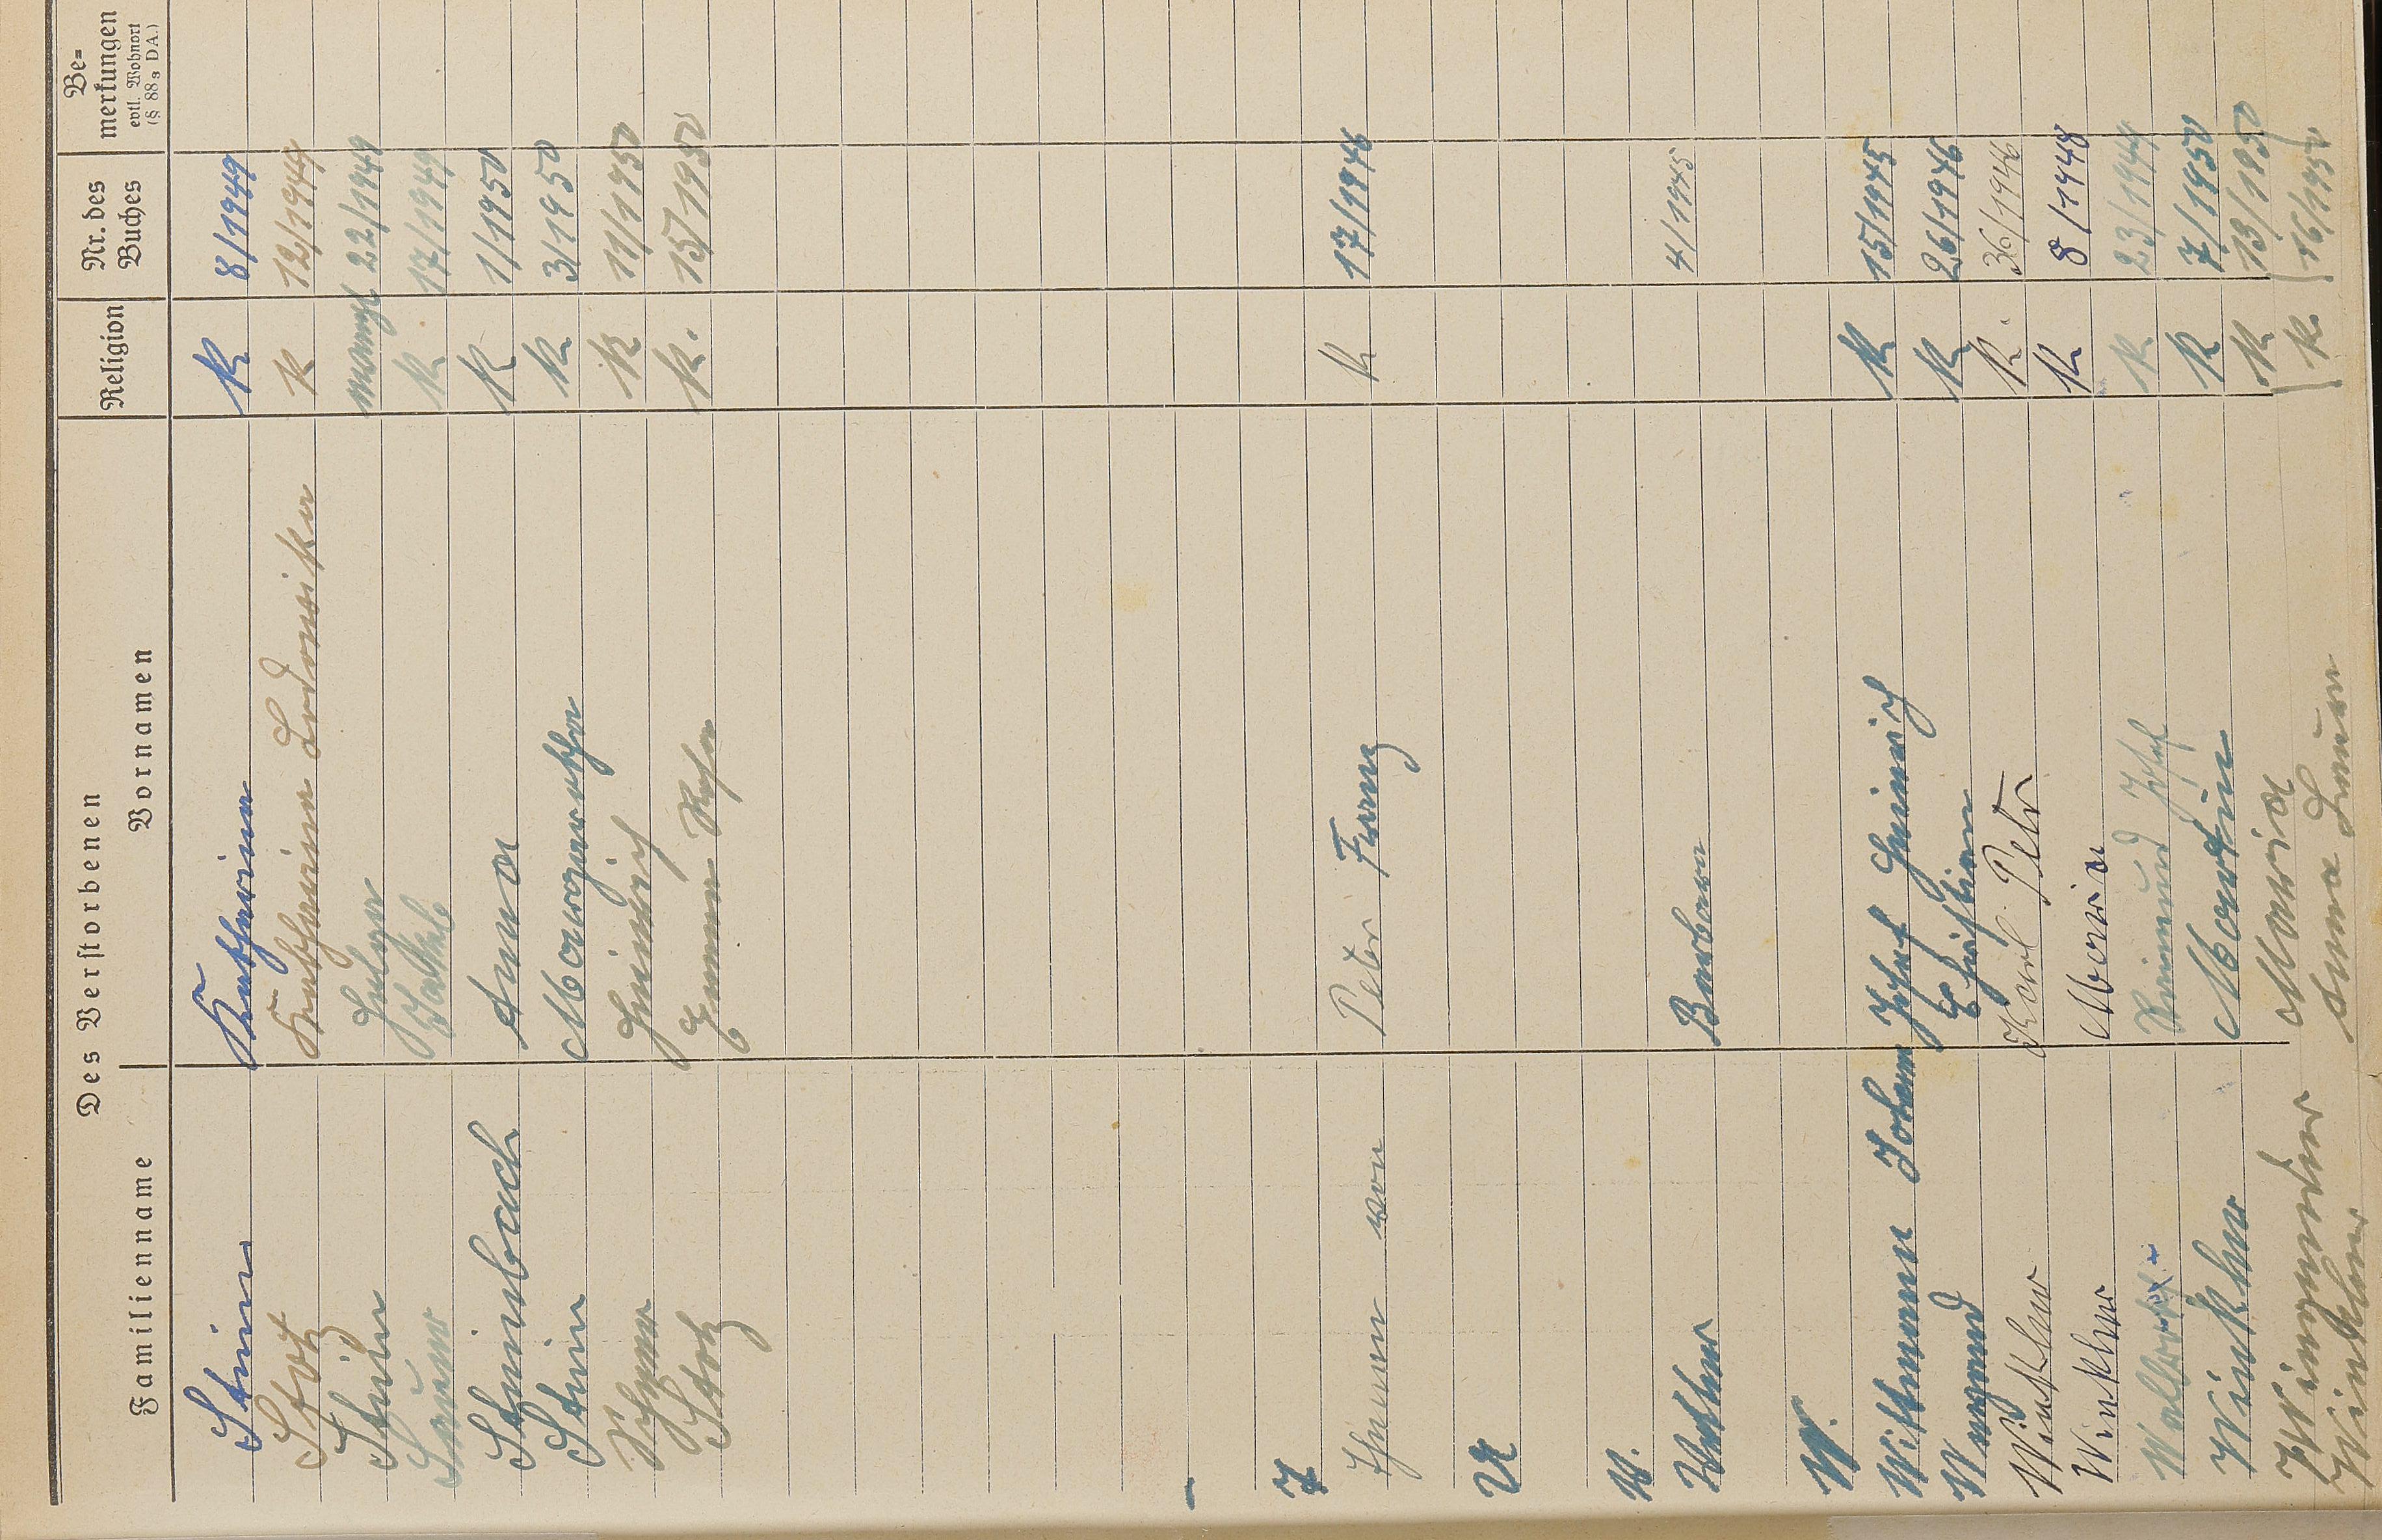 Des Verstorbenen
Familienname Vornamen Religion Nr. des Buches Bemerkungen evtl. Wohnort (§ 88 a DA.)
Stein Katharina K 8/1949
Stotz Katharina Ludovika K 12/1949
Stein 22/1949
Sauer K 17/1949
Steinbach Anna K 1/1950
Stein Margaretha K 3/1950
Heinrich K 11/1950
Stotz Emma Rosa K. 15/1950
T
Thenen von Peter Franz K 17/1946
U
V.
Vetter Barbara 4/1945
W.
Wittmann Johann Josef Heinrich K 15/1945
Weygand Christian K 26/1946
Winkler Karl Peter K. 36/1946
Winkler Maria K 8/1948
Raimund Josef K 23/1949
Winkler Martin K 7/1950
Maria K 13/1950
Winkler Anna K. 16/1950